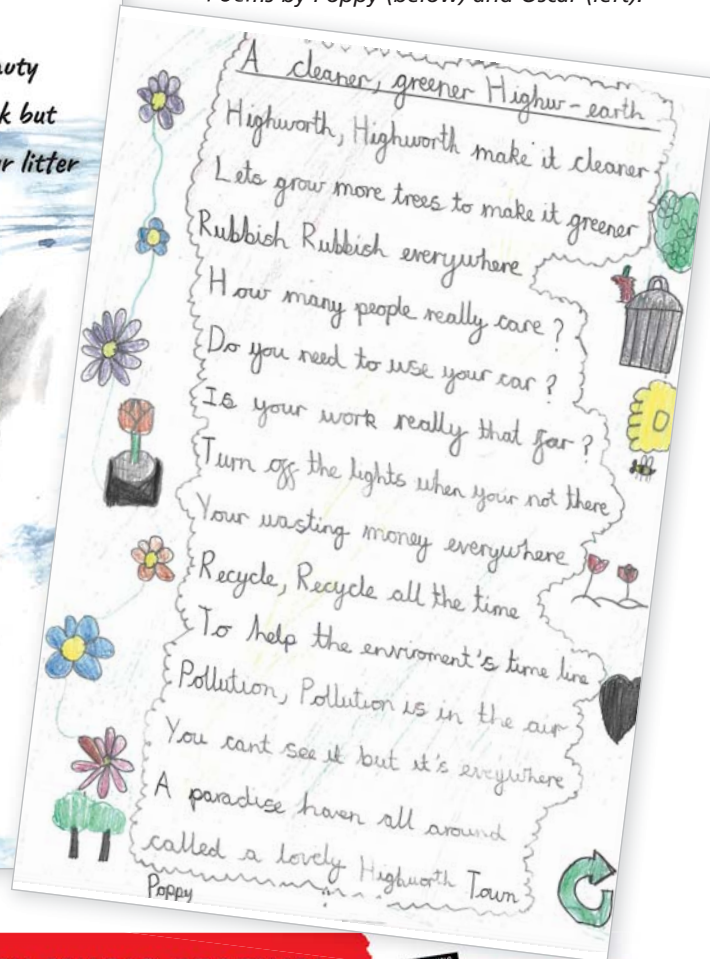 Poems by Poppy (below) and Oscar (left).
A cleaner, greener Highw-earth
Highworth, Highworth make it cleaner
Lets grow more trees to make it greener
Rubbish Rubbish everywhere
How many people really care?
Do you need to use your car?
Is your work really that far?
Turn off the lights when your not there
Your wasting money everywhere
Recycle, Recycle all the time
To help the enviroment's time line
Pollution, Pollution is in the air
You cant see it but it's eveywhere
A paradise haven all around
called a lovely Highworth Town
Poppy
k but
r litter